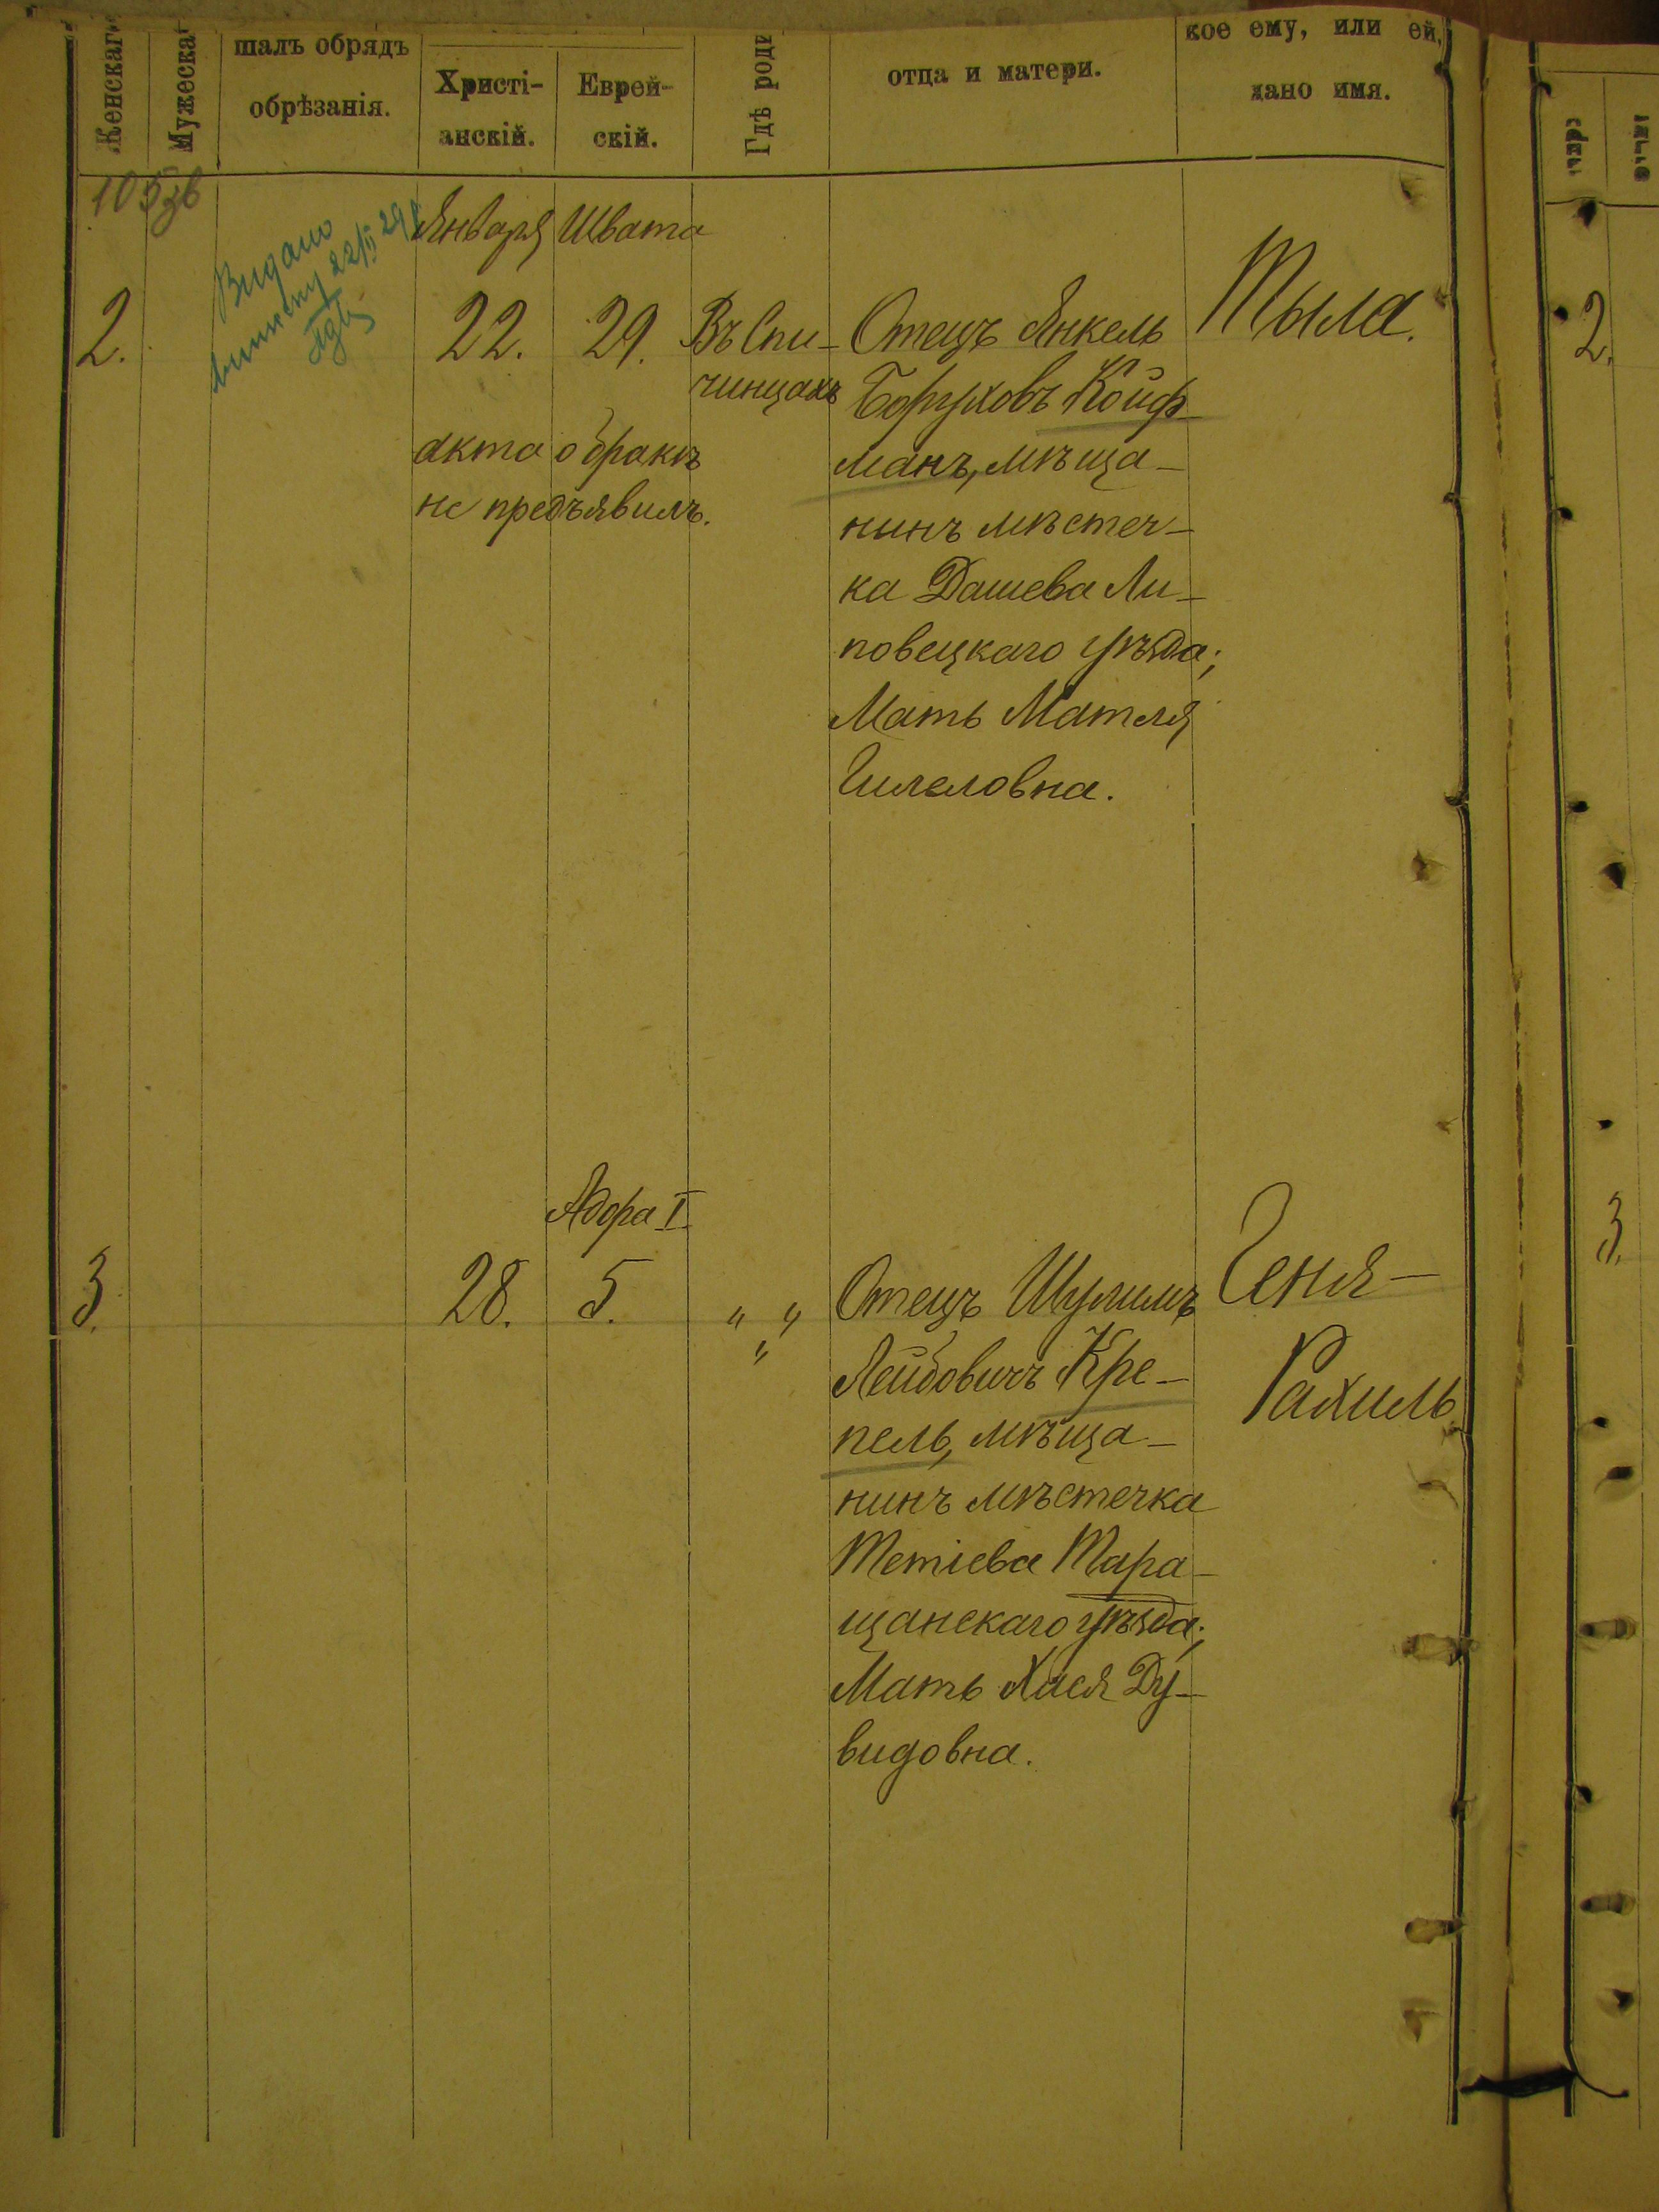 Женскаго
Мужеска
шалъ обрядъ
обрѣзанія.
Христі-
анскій.
Еврей-
скій.
Гдѣ роди
отца и матери.
кое ему, или ей,
дано имя.
105зв
Видано
виписку 22/II 29р
Января Швата
2.
22.
29.
Въ Спи-
чинцахъ
Отецъ Янкель
Боруховъ Койф-
манъ, мѣща-
нинъ мѣстеч-
ка Дашева Ли-
повецкаго уѣзда;
Мать Матля
Гилеловна.
Тыла.
акта о бракѣ
не предъявилъ.
Адора I.
3.
28.
5.
" "
"
Отецъ Шулимъ
Лейбовичъ Кре-
пель, мѣща-
нинъ мѣстечка
Тетіева Тара-
щанскаго уѣзда;
Мать Хася Ду-
видовна.
Геня-
Рахиль.
2.
3.